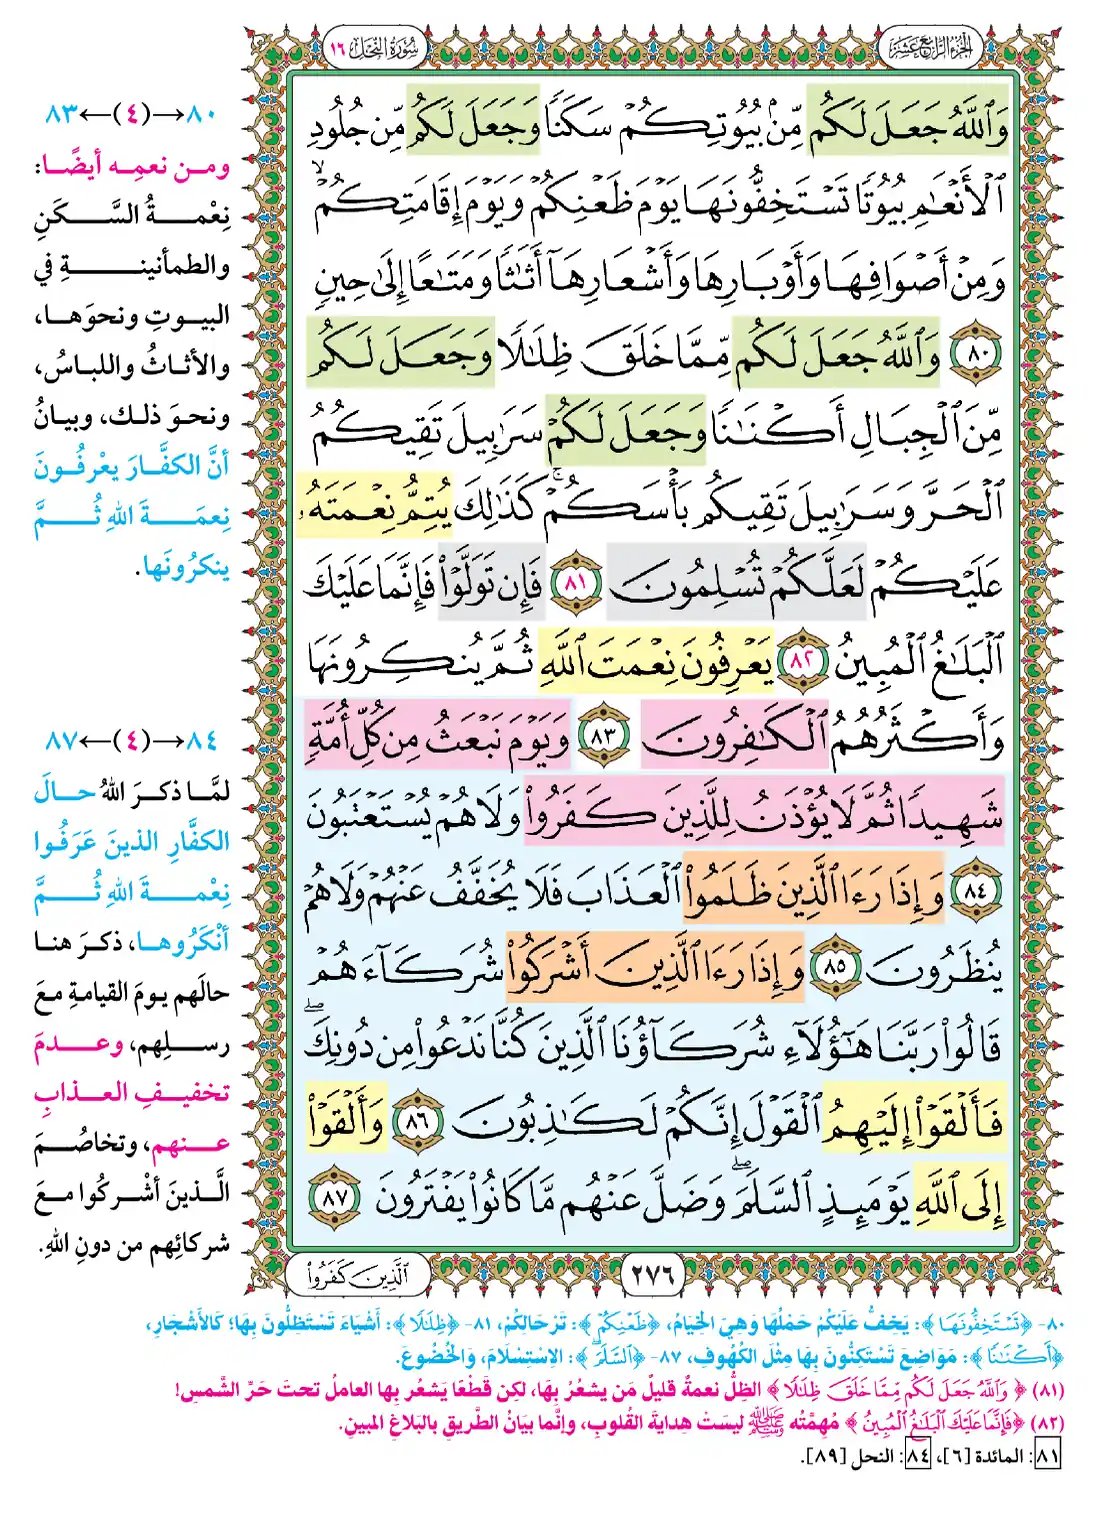 الجزء الرابع عشر
سورة النحل ١٦
وَٱللَّهُ جَعَلَ لَكُم مِّنۢ بُيُوتِكُمۡ سَكَنٗا وَجَعَلَ لَكُم مِّن جُلُودِ
ٱلۡأَنۡعَٰمِ بُيُوتٗا تَسۡتَخِفُّونَهَا يَوۡمَ ظَعۡنِكُمۡ وَيَوۡمَ إِقَامَتِكُمۡۙ
وَمِنۡ أَصۡوَافِهَا وَأَوۡبَارِهَا وَأَشۡعَارِهَآ أَثَٰثٗا وَمَتَٰعًا إِلَىٰ حِينٖ
٨٠ وَٱللَّهُ جَعَلَ لَكُم مِّمَّا خَلَقَ ظِلَٰلٗا وَجَعَلَ لَكُم
مِّنَ ٱلۡجِبَالِ أَكۡنَٰنٗا وَجَعَلَ لَكُمۡ سَرَٰبِيلَ تَقِيكُمُ
ٱلۡحَرَّ وَسَرَٰبِيلَ تَقِيكُم بَأۡسَكُمۡۚ كَذَٰلِكَ يُتِمُّ نِعۡمَتَهُۥ
عَلَيۡكُمۡ لَعَلَّكُمۡ تُسۡلِمُونَ ٨١ فَإِن تَوَلَّوۡاْ فَإِنَّمَا عَلَيۡكَ
ٱلۡبَلَٰغُ ٱلۡمُبِينُ ٨٢ يَعۡرِفُونَ نِعۡمَتَ ٱللَّهِ ثُمَّ يُنكِرُونَهَا
وَأَكۡثَرُهُمُ ٱلۡكَٰفِرُونَ ٨٣ وَيَوۡمَ نَبۡعَثُ مِن كُلِّ أُمَّةٖ
شَهِيدٗا ثُمَّ لَا يُؤۡذَنُ لِلَّذِينَ كَفَرُواْ وَلَا هُمۡ يُسۡتَعۡتَبُونَ
٨٤ وَإِذَا رَءَا ٱلَّذِينَ ظَلَمُواْ ٱلۡعَذَابَ فَلَا يُخَفَّفُ عَنۡهُمۡ وَلَا هُمۡ
يُنظَرُونَ ٨٥ وَإِذَا رَءَا ٱلَّذِينَ أَشۡرَكُواْ شُرَكَآءَهُمۡ
قَالُواْ رَبَّنَا هَٰٓؤُلَآءِ شُرَكَآؤُنَا ٱلَّذِينَ كُنَّا نَدۡعُواْ مِن دُونِكَۖ
فَأَلۡقَوۡاْ إِلَيۡهِمُ ٱلۡقَوۡلَ إِنَّكُمۡ لَكَٰذِبُونَ ٨٦ وَأَلۡقَوۡاْ
إِلَى ٱللَّهِ يَوۡمَئِذٍ ٱلسَّلَمَۖ وَضَلَّ عَنۡهُم مَّا كَانُواْ يَفۡتَرُونَ ٨٧
٢٧٦
ٱلَّذِينَ كَفَرُواْ
٨٠→(٤)←٨٣
ومن نعمِه أيضًا:
نِعْمةُ السَّكَنِ
والطمأنينةِ في
البيوتِ ونحوَها،
والأثاثُ واللباسُ،
ونحوَ ذلك، وبيانُ
أنَّ الكفَّارَ يعْرفُونَ
نِعمَةَ اللهِ ثُمَّ
ينكرُونَها.
٨٤→(٤)←٨٧
لمَّا ذكرَ اللهُ حالَ
الكفَّارِ الذينَ عَرَفُوا
نِعْمةَ اللهِ ثُمَّ
أنْكَرُوها، ذكرَ هنا
حالَهم يومَ القيامةِ معَ
رسلِهم، وعدمَ
تخفيفِ العذابِ
عنهم، وتخاصُمَ
الَّذينَ أشْركُوا معَ
شركائِهم من دونِ اللهِ.
٨٠- ﴿تَسْتَخِفُّونَهَا﴾: يَخِفُّ عَلَيْكُمْ حَمْلُهَا وَهِيَ الْخِيَامُ، ﴿ظَعْنِكُمْ﴾: تَرْحَالِكُمْ، ٨١- ﴿ظِلَٰلًا﴾: أَشْيَاءَ تَسْتَظِلُّونَ بِهَا؛ كَالأَشْجَارِ،
﴿أَكْنَٰنًا﴾: مَوَاضِعَ تَسْتَكِنُّونَ بِهَا مِثْلَ الكُهُوفِ، ٨٧- ﴿ٱلسَّلَمَ﴾: الِاسْتِسْلَامَ، وَالْخُضُوعَ.
(٨١) ﴿وَٱللَّهُ جَعَلَ لَكُم مِّمَّا خَلَقَ ظِلَٰلًا﴾ الظِلُّ نعمةٌ قليلٌ مَن يشعُرُ بِهَا، لكِن قَطْعًا يَشعُر بِها العاملُ تحتَ حَرِّ الشَّمسِ!
(٨٢) ﴿فَإِنَّمَا عَلَيْكَ ٱلْبَلَٰغُ ٱلْمُبِينُ﴾ مُهِمَّتُه ﷺ ليسَتْ هِدايةَ القُلوبِ، وإنَّما بيَانُ الطَّريقِ بالبَلاغِ المبينِ.
٨١: المائدة [٦]، ٨٤: النحل [٨٩].